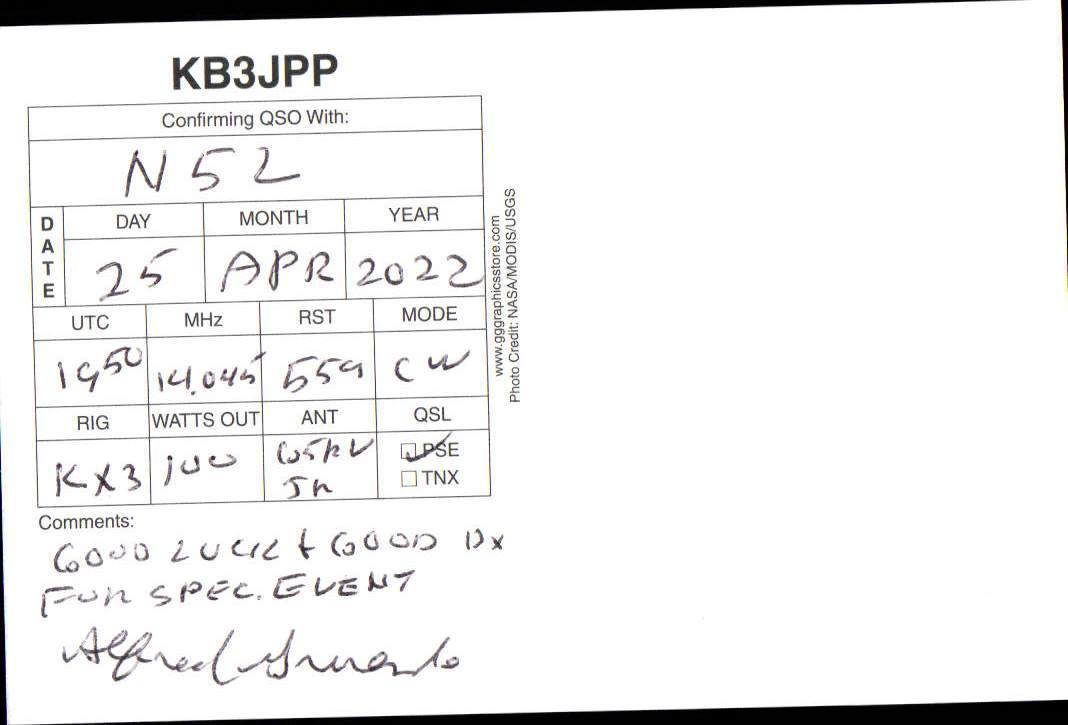 KB3JPP
Confirming QSO With:
N52
DATE
DAY MONTH YEAR
25 APR 2022
UTC MHz RST MODE
1950 14.045 559 CW
RIG WATTS OUT ANT QSL
KX3 100 G5RV PSE
Jr TNX
Comments:
GOOD LUCK + GOOD DX
FOR SPEC. EVENT
Alfred
www.gggraphicsstore.com
Photo Credit: NASA/MODIS/USGS